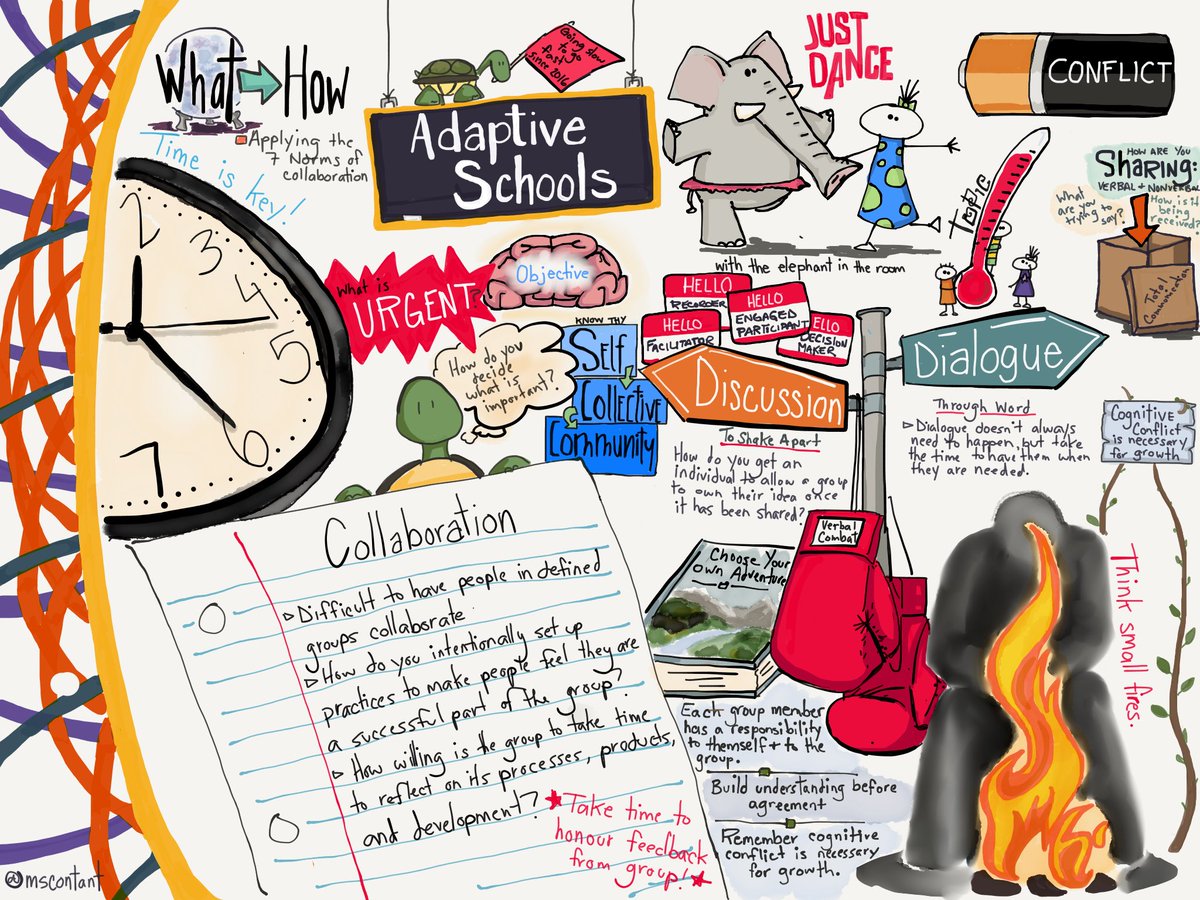 What → How
Applying the
7 Norms of
collaboration
Time is key!
2
3
4
5
6
7
Going slow
to go
fast
since 2016
Adaptive
Schools
JUST
DANCE
with the elephant in the room
CONFLICT
Topic
HOW ARE YOU
SHARING:
VERBAL + NONVERBAL
What
are you
trying to
say?
How is it
being
received?
Total
Communication
What is
URGENT?
Objective
How do you
decide
what is
important?
KNOW THY
Self
Collective
Community
HELLO
RECORDER
HELLO
ENGAGED
PARTICIPANT
HELLO
FACILITATOR
ELLO
DECISION
MAKER
Discussion
To Shake Apart
How do you get an
individual to allow a group
to own their idea once
it has been shared?
Dialogue
Through Word
Dialogue doesn't always
need to happen, but take
the time to have them when
they are needed.
Cognitive
Conflict
is necessary
for growth
Collaboration
Difficult to have people in defined
groups collaborate
How do you intentionally set up
practices to make people feel they are
a successful part of the group?
How willing is the group to take time
to reflect on its processes, products,
and development?
Take time to
honour feedback
from group!
Verbal
Combat
Choose Your
Own Adventure
Each group member
has a responsibility
to themself + to the
group.
Build understanding before
agreement
Remember cognitive
conflict is necessary
for growth.
Think small fires.
@mscontant